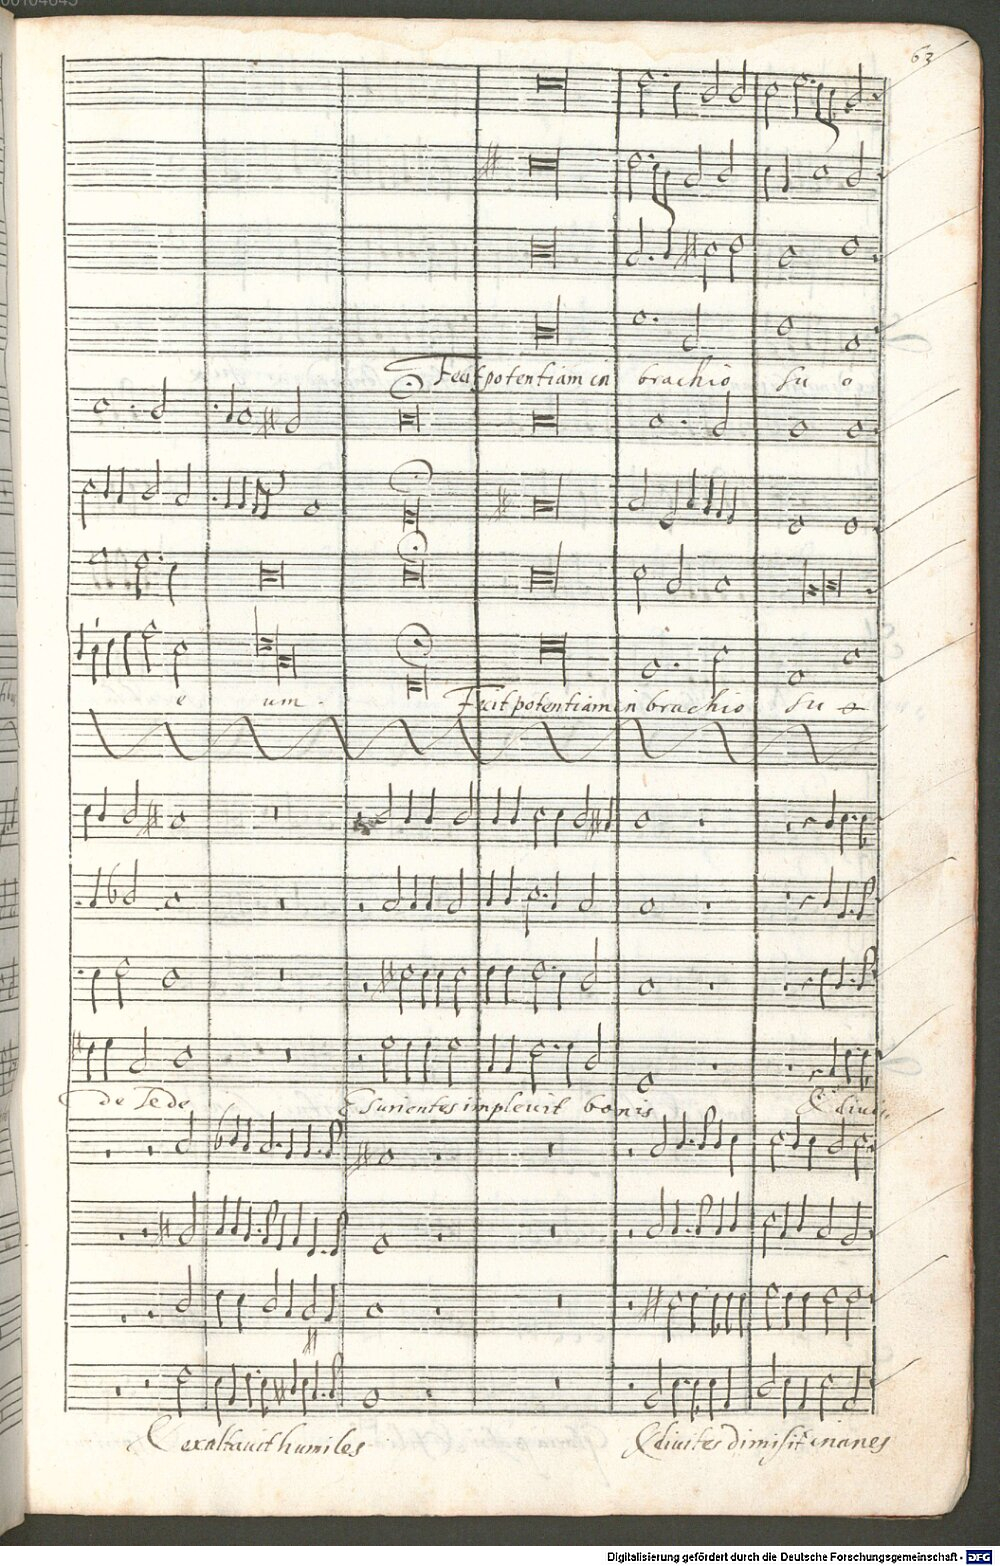 63
Fecit potentiam in brachio su o
e um.
Fecit potentiam in brachio su o
de sede Esurientes implevit bonis & divi
& exaltavit humiles & divites dimisit inanes
Digitalisierung gefördert durch die Deutsche Forschungsgemeinschaft - DFG